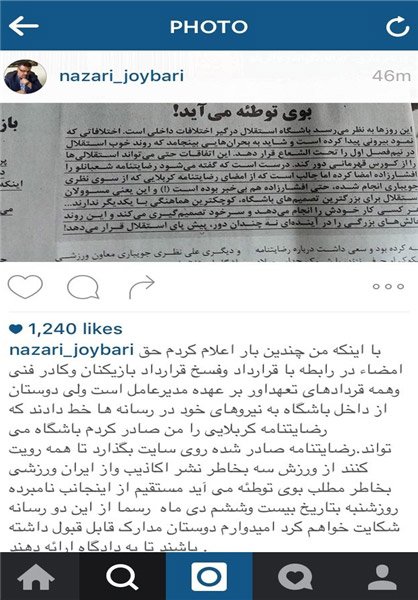 PHOTO
nazari_joybari
46m
بوی توطئه می‌آید!
باز
این روزها به نظر می‌رسد باشگاه استقلال درگیر اختلافات داخلی است. اختلافاتی که
نمود بیرونی پیدا کرده است و شاید به بحران‌هایی بینجامد که روند خوب استقلال
نیم‌فصل اول را تحت الشعاع قرار دهد. این اتفاقات حتی می‌تواند استقلالی‌ها
را از کورس قهرمانی دور کند. درست است که گفته می‌شود رضایتنامه شعبانلو را
افشارزاده امضا کرده اما جالب است که از امضای رضایتنامه کربلایی که از سوی نظری
جویباری انجام شده، حتی افشارزاده هم بی‌خبر بوده است (!) و این یعنی مسوولان
استقلال برای بزرگترین تصمیم‌های باشگاه، کوچکترین هماهنگی با یکدیگر ندارند.
کسی کار خودش را انجام می‌دهد و سرخود تصمیم‌گیری می‌کند و این روند
های بزرگی را در آینده‌ای نه چندان دور، پیش پای استقلال قرار می‌دهد!
اینکه
کرده بود و سعی داشت درباره رضایتنامه
و دیگری علی نظری جویباری معاون ورزشی
1,240 likes
nazari_joybari با اینکه من چندین بار اعلام کردم حق
امضاء در رابطه با قرارداد وفسخ قرارداد بازیکنان وکادر فنی
وهمه قردادهای تعهداور بر عهده مدیرعامل است ولی دوستان
از داخل باشگاه به نیروهای خود در رسانه ها خط دادند که
رضایتنامه کربلایی را من صادر کردم باشگاه می
تواند.رضایتنامه صادر شده روی سایت بگذارد تا همه رویت
کنند از ورزش سه بخاطر نشر اکاذیب واز ایران ورزشی
بخاطر مطلب بوی توطئه می آید مستقیم از اینجانب نامبرده
روزشنبه بتاریخ بیست وششم دی ماه رسما از این دو رسانه
شکایت خواهم کرد امیدوارم دوستان مدارک قابل قبول داشته
باشند تا به دادگاه ارائه دهند .